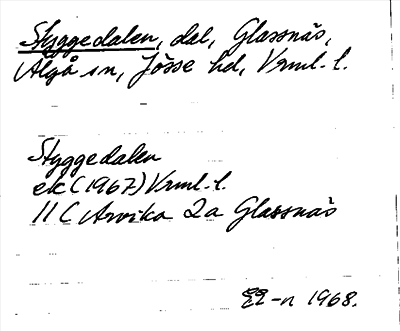 Styggedalen, dal, Glassnäs,
Älgå sn, Jösse hd, Vrml. l.
Styggedalen
ek (1967) Vrml. l.
11 C Arvika 2a Glassnäs
1968.